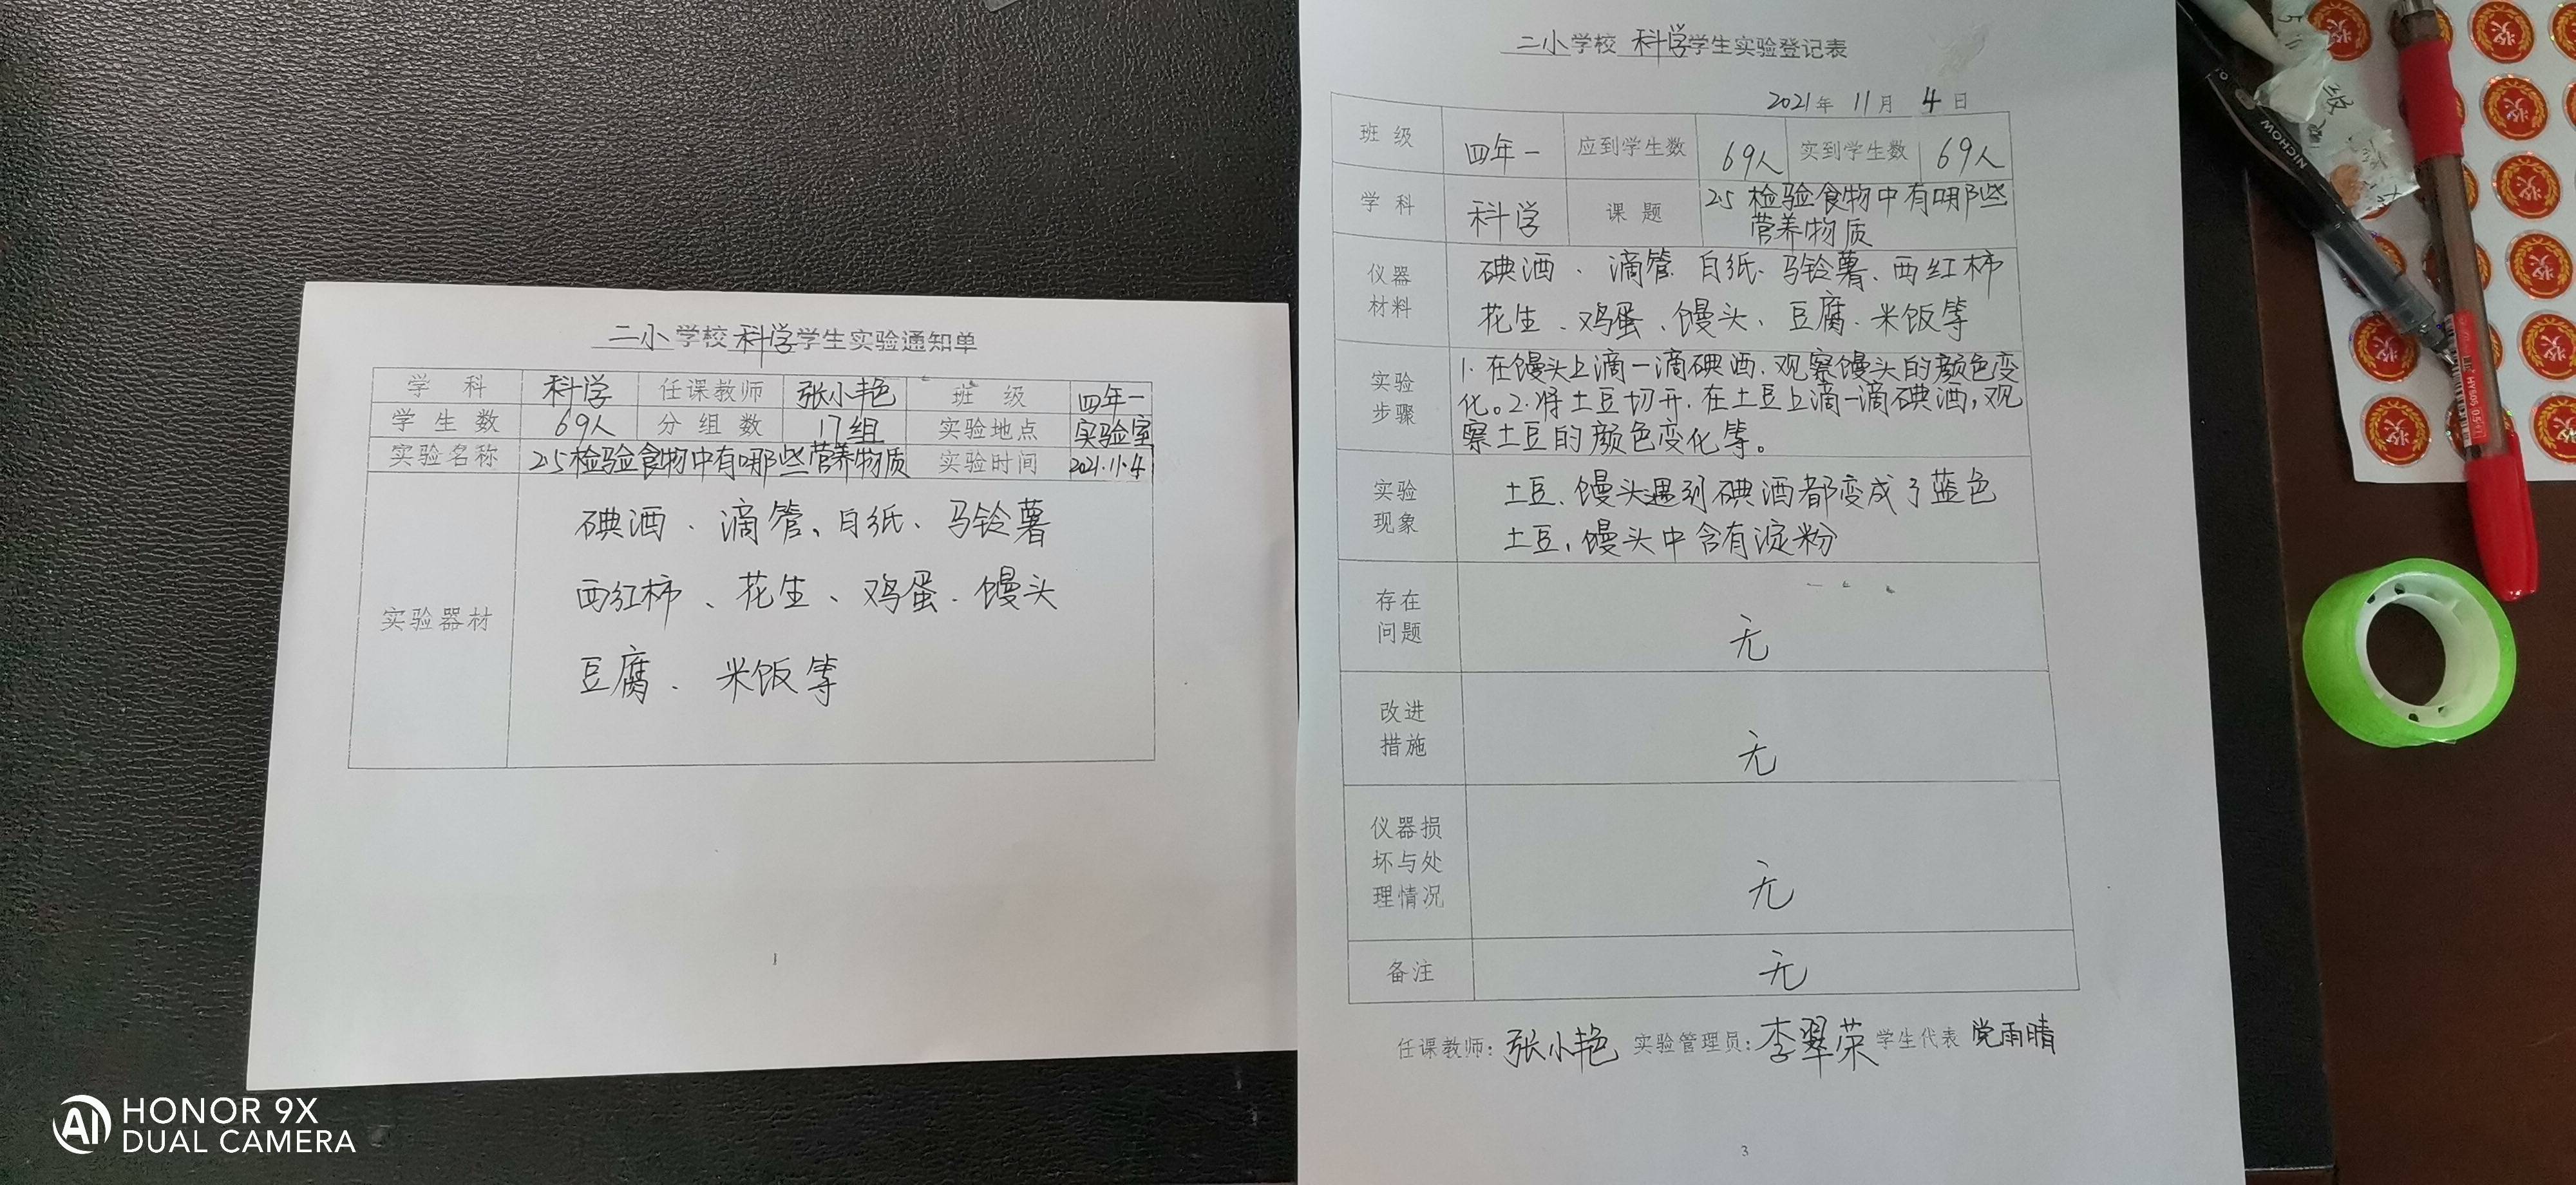 二小学校科学学生实验通知单
学科 科学 任课教师 张小艳 班级 四年一
学生数 69人 分组数 17组 实验地点 实验室
实验名称 2.5检验食物中有哪些营养物质 实验时间 2021.11.4
实验器材
碘酒、滴管、白纸、马铃薯
西红柿、花生、鸡蛋、馒头
豆腐、米饭等
1
二小学校 科学学生实验登记表
2021年 11月 4日
班级 四年一 应到学生数 69人 实到学生数 69人
学科 科学 课题 2.5 检验食物中有哪些
营养物质
仪器
材料
碘酒、滴管、白纸、马铃薯、西红柿
花生、鸡蛋、馒头、豆腐、米饭等
实验
步骤
1.在馒头上滴一滴碘酒,观察馒头的颜色变
化。2.将土豆切开,在土豆上滴一滴碘酒,观
察土豆的颜色变化等。
实验
现象
土豆、馒头遇到碘酒都变成了蓝色
土豆,馒头中含有淀粉
存在
问题
无
改进
措施
无
仪器损
坏与处
理情况
无
备注 无
任课教师:张小艳 实验管理员:李翠荣 学生代表 党雨晴
3
奖
NICHOW
AI HONOR 9X
DUAL CAMERA